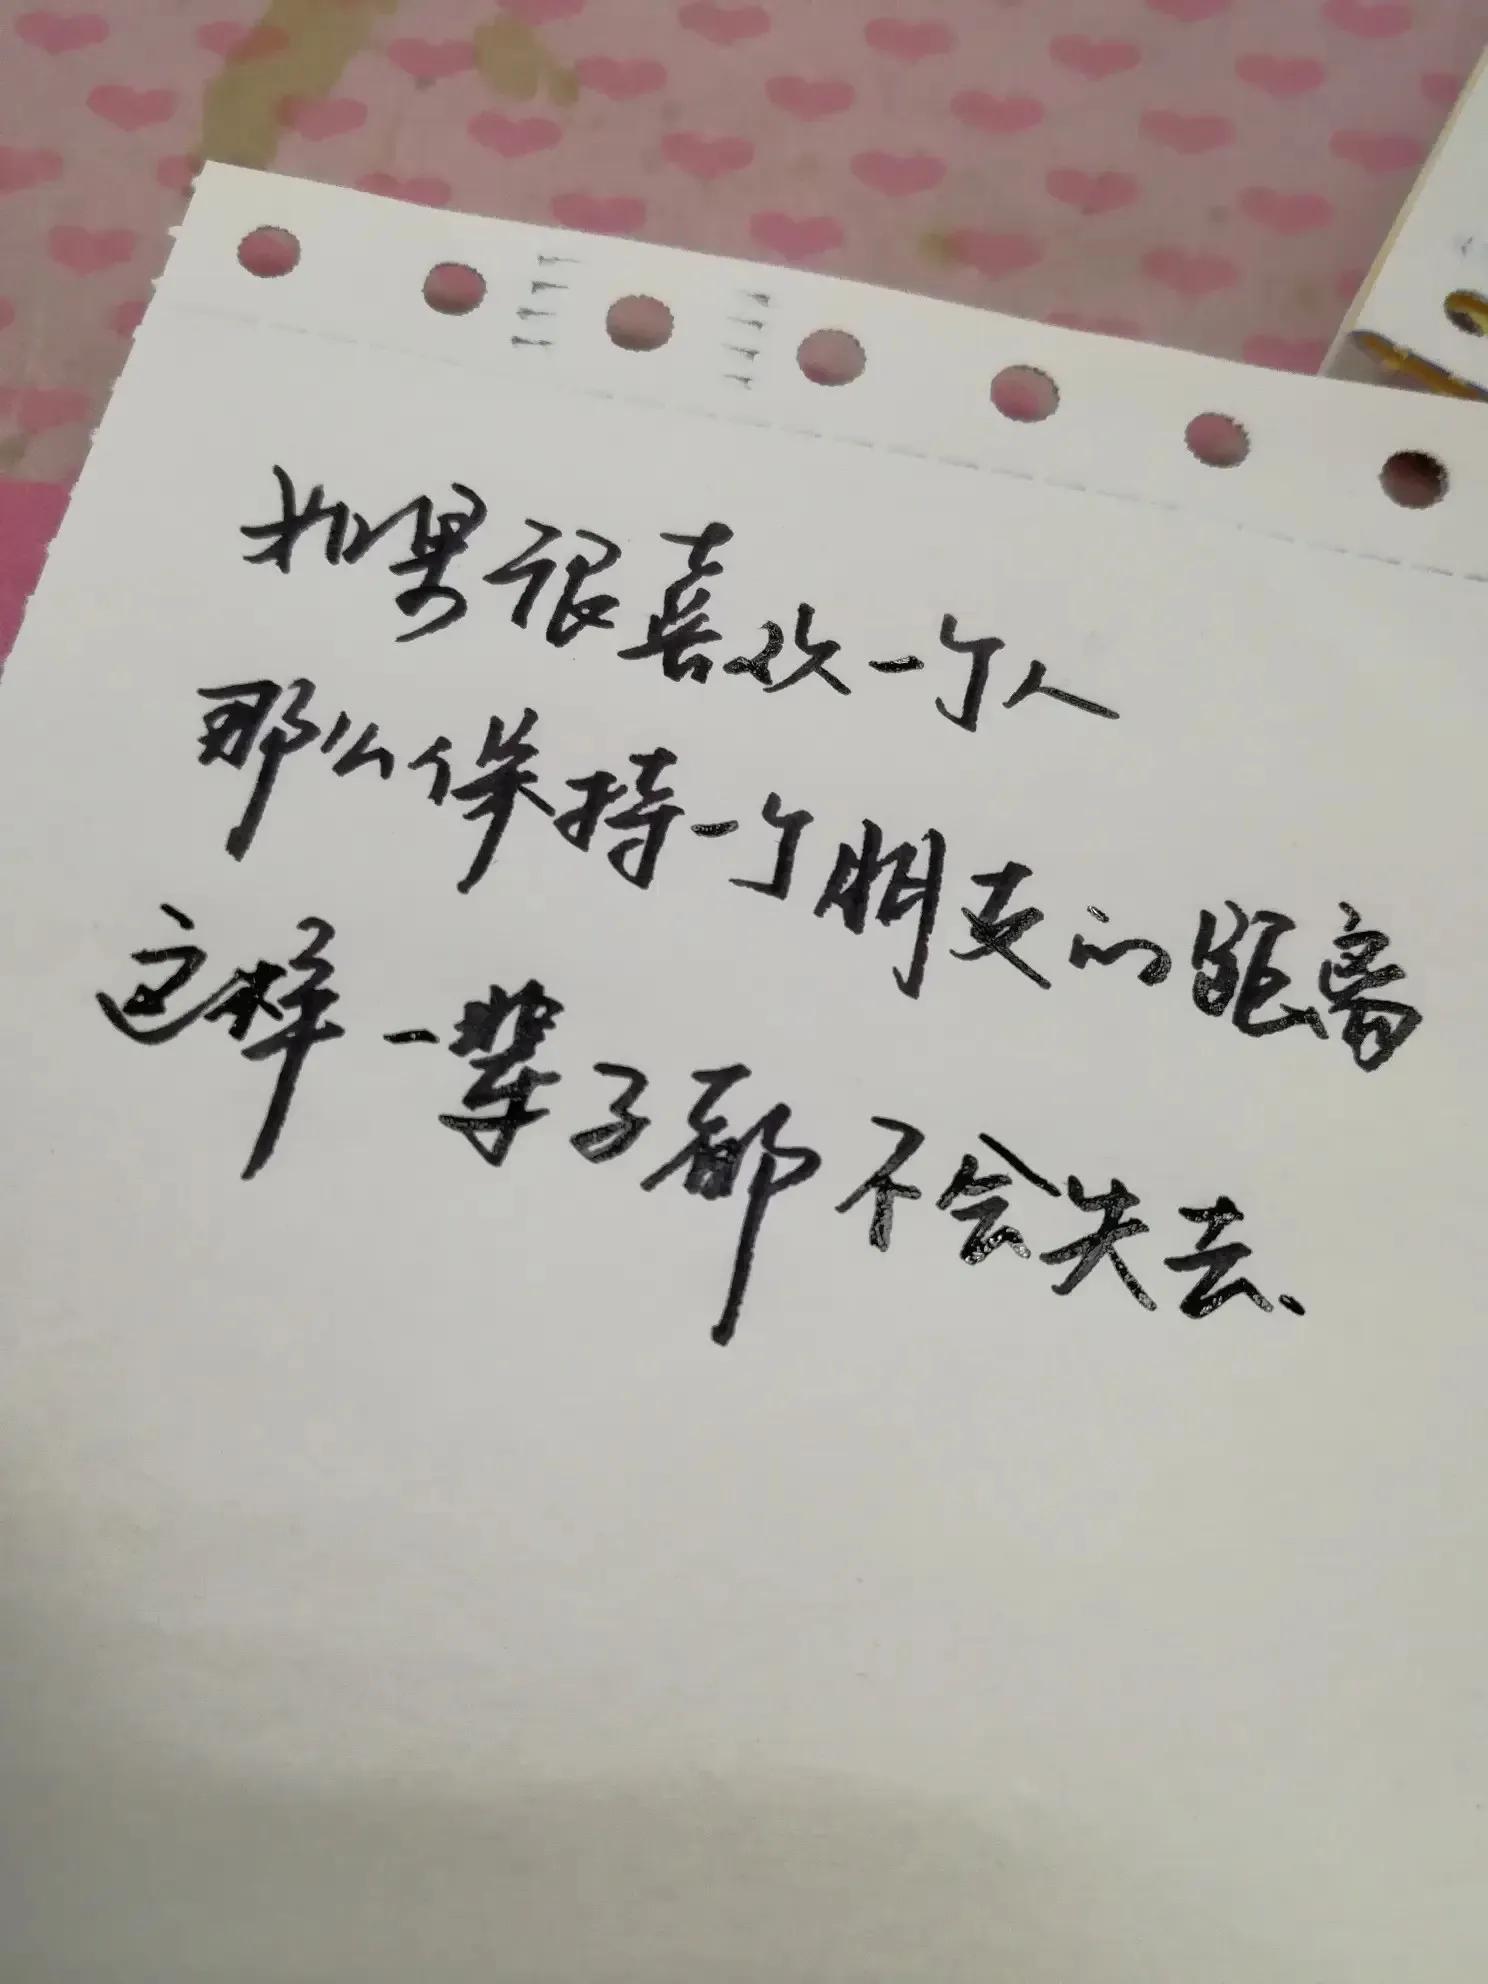 如果很喜欢一个人
那么保持一个朋友的距离
这样一辈子都不会失去.